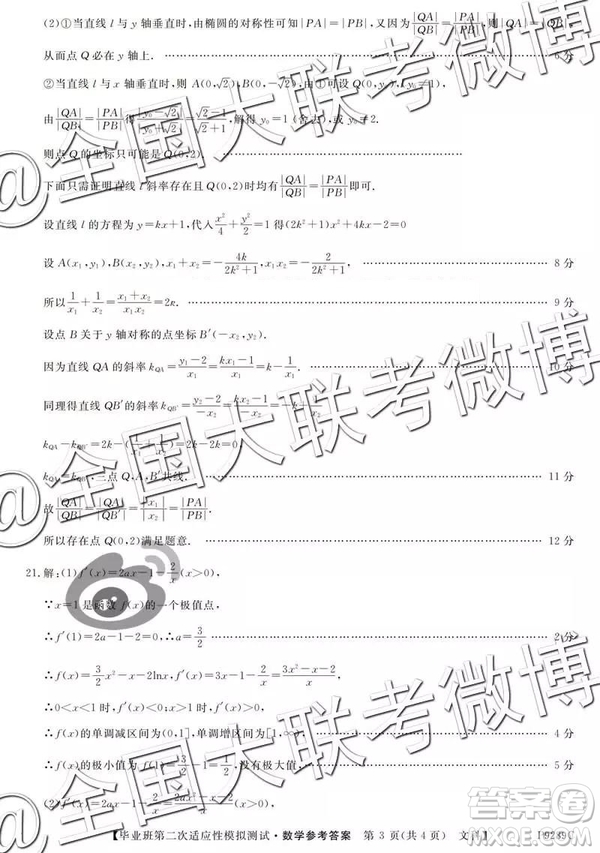 (2)①当直线 l 与 y 轴垂直时,由椭圆的对称性可知|PA|=|PB|,又因为|QA|/|QB|=|PA|/|PB|,
从而点 Q 必在 y 轴上. 6 分
②当直线 l 与 x 轴垂直时,则 A(0,√2),B(0,-√2),由①可设 Q(0,y₀),
由|QA|/|QB|=|PA|/|PB|得|y₀-√2|/|y₀+√2|=(√2-1)/(√2+1),解得 y₀=1(舍去),或 y₀=2.
则点 Q 的坐标只可能是 Q(0,2)
下面只需证明直线 l 斜率存在且 Q(0,2)时均有|QA|/|QB|=|PA|/|PB|即可.
设直线 l 的方程为 y=kx+1,代入 x²/4+y²/2=1 得(2k²+1)x²+4kx-2=0
设 A(x₁,y₁),B(x₂,y₂),x₁+x₂=-4k/(2k²+1),x₁x₂=-2/(2k²+1), 8 分
所以 1/x₁+1/x₂=(x₁+x₂)/(x₁x₂)=2k. 9 分
设点 B 关于 y 轴对称的点坐标 B′(-x₂,y₂),
因为直线 QA 的斜率 k_QA=(y₁-2)/x₁=(kx₁-1)/x₁=k-1/x₁, 10 分
同理得直线 QB′的斜率 k_QB′=(y₂-2)/(-x₂)=(kx₂-1)/(-x₂)
k_QA-k_QB′=2k-
k_QA=k_QB′,三点 Q,A,B′共线. 11 分
故|QA|/|QB|=|QA|/|QB′|=|x₁|/|x₂|=|PA|/|PB|.
所以存在点 Q(0,2)满足题意. 12 分
21.解:(1)f′(x)=2ax-1-2/x(x>0),
∵x=1 是函数 f(x)的一个极值点,
∴f′(1)=2a-1-2=0,∴a=3/2
∴f(x)=3/2x²-x-2lnx,f′(x)=3x-1-2/x=(3x²-x-2)/x,
∴0<x<1 时,f′(x)<0,x>1 时,f′(x)>0,
∴f(x)的单调减区间为(0,1],单调增区间为[1,∞), 4 分
∴f(x)的极小值为 f(1)=3/2-1=1/2,没有极大值. 5 分
【毕业班第二次适应性模拟测试·数学参考答案 第 3 页(共 4 页) 文科】
19289C
@全国大联考微博
@全国大联考微博
@全国大联考微博
答案圈